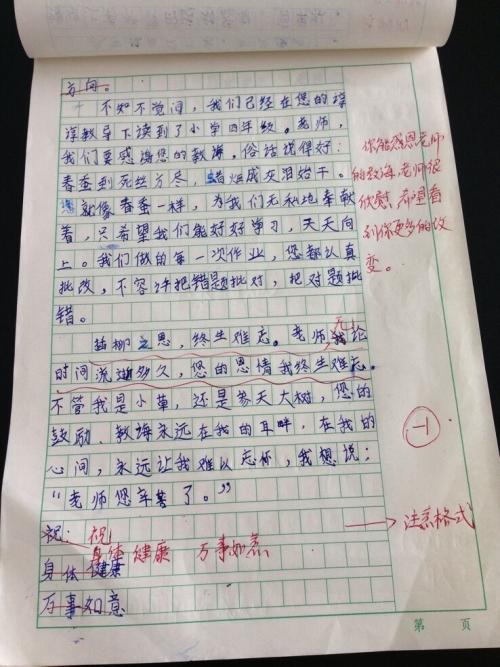 方向。
不知不觉间，我们已经在您的谆
谆教导下读到了小学四年级。老师，
我们要感谢您的教诲，俗话说得好：
春蚕到死丝方尽，蜡烟成灰泪始干。
您就像春蚕一样，为我们无私地奉献
着，只希望我们能好好学习，天天向
上。我们做的每一次作业，您都认真
批改，不容许把错题批对，把对题批
错。
你能感恩老师
的教诲老师很
欣慰，希望看
到你更多的改
变。
插柳之恩，终生难忘。老师，我论
无
时间流逝多久，您的恩情我终生难忘。
不管我是小草，还是参天大树，您的
鼓励、教诲永远在我的耳畔，在我的
心间，永远让我难以忘怀，我想说：
“老师您辛苦了。”
-1
祝：祝
身体健康 万事如意
注意格式
身体健康
万事如意
第 页